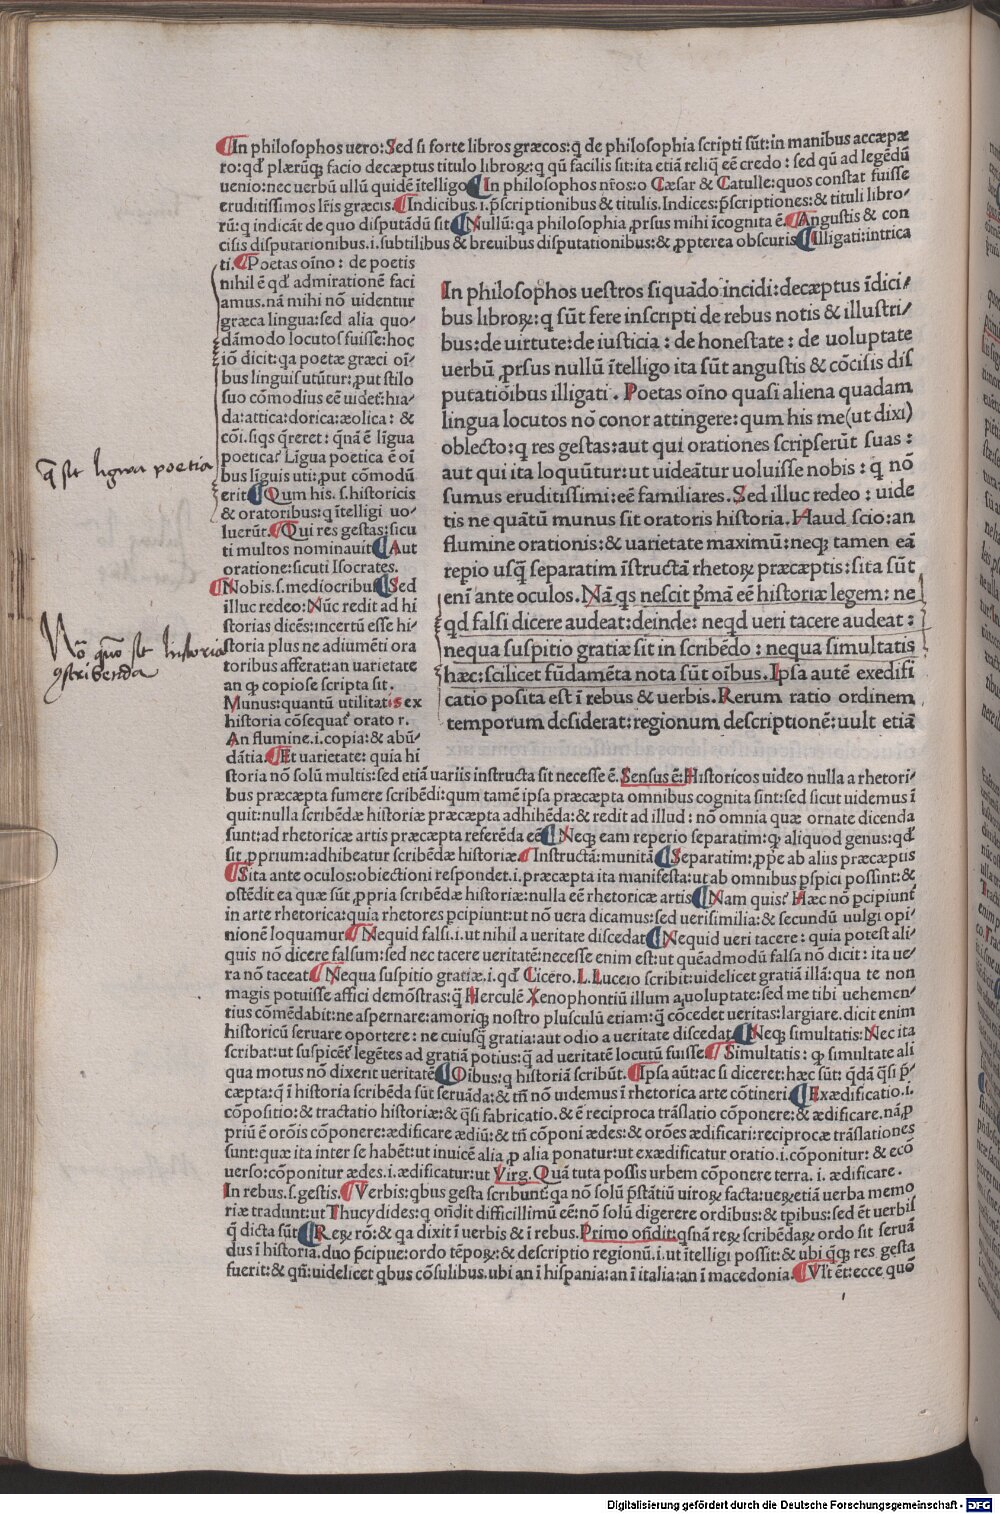 In philosophos uero: Sed si forte libros græcos: q̃ de philosophia scripti sũt: in manibus accæpæ
ro: qđ plærũq; facio decæptus titulo libroꝝ: q qũ facilis sit: ita etiã reliq̃ eẽ credo: sed qũ ad legẽdũ
uenio: nec uerbũ ullũ quidẽ ĩtelligo In philosophos nr̃os: o Cæsar & Catulle: quos constat fuisse
eruditissimos lr̃is græcis. Indicibus .i. p̃scriptionibus & titulis. Indices: p̃scriptiones: & tituli libro-
rũ: q indicãt de quo disputãdũ sit Nullũ: qa philosophia ꝓrsus mihi ĩcognita ẽ. Angustis & con
cisis disputationibus .i. subtilibus & breuibus disputationibus: & ꝓpterea obscuris Illigati: intrica
ti. Poetas oĩno: de poetis
nihil ẽ qđ admirationẽ faci
amus. nã mihi nõ uidentur
græca lingua: sed alia quo-
dãmodo locutos fuisse: hoc
iõ dicit: qa poetæ græci oĩ-
bus linguis utũtur: ꝓut stilo
suo cõmodius eẽ uidet̃: hia-
da: attica: dorica: æolica: &
cõi. siqs q̃reret: q̃nã ẽ lĩgua
poetica? Lĩgua poetica ẽ oĩ
bus lĩguis uti: ꝓut cõmodũ
erit Qum his .s. historicis
& oratoribus: q ĩtelligi uo-
luerũt. Qui res gestas: sicu
ti multos nominauit Aut
oratione: sicuti Isocrates.
Nobis .s. mediocribus Sed
illuc redeo: Nũc redit ad hi
storias dicẽs: incertũ esse hi-
storia plus ne adiumẽti ora
toribus afferat: an uarietate
an ꝙ copiose scripta sit.
Munus: quantũ utilitatis ex
historia cõsequat̃ orator.
An flumine .i. copia: & abũ-
dãtia. Et uarietate: quia hi
q̃ sit lignu poetia
Nõ quõ sit historia
ꝯstribenda
In philosophos uestros siquãdo incidi: decæptus ĩdici-
bus libroꝝ: q sũt fere inscripti de rebus notis & illustri-
bus: de uirtute: de iusticia: de honestate: de uoluptate
uerbũ ꝓrsus nullũ ĩtelligo ita sũt angustis & cõcisis dis
putatiõibus illigati. Poetas oĩno quasi aliena quadam
lingua locutos nõ conor attingere: qum his me (ut dixi)
oblecto: q res gestas: aut qui orationes scripserũt suas:
aut qui ita loquũtur: ut uideãtur uoluisse nobis: q nõ
sumus eruditissimi: eẽ familiares. Sed illuc redeo: uide
tis ne quãtũ munus sit oratoris historia. Haud scio: an
flumine orationis: & uarietate maximũ: neq; tamen eã
repio usq̃ separatim ĩstructã rhetoꝝ præcæptis: sita sũt
enĩ ante oculos. Nã qs nescit p̃mã eẽ historiæ legem: ne
qd falsi dicere audeat: deinde: neqd ueri tacere audeat:
nequa suspitio gratiæ sit in scribẽdo: nequa simultatis
hæc: scilicet fũdamẽta nota sũt oĩbus. Ipsa autẽ exedifi
catio posita est ĩ rebus & uerbis. Rerum ratio ordinem
temporum desiderat: regionum descriptionẽ: uult etiã
storia nõ solũ multis: sed etiã uariis instructa sit necesse ẽ. Sensus ẽ: Historicos uideo nulla a rhetori-
bus præcæpta sumere scribẽdi: qum tamẽ ipsa præcæpta omnibus cognita sint: sed sicut uidemus ĩ
quit: nulla scribẽdæ historiæ præcæpta adhibẽda: & redit ad illud: nõ omnia quæ ornate dicenda
sunt: ad rhetoricæ artis præcæpta referẽda eẽ Neq; eam reperio separatim: q; aliquod genus: qđ
sit ꝓprium: adhibeatur scribẽdæ historiæ. Instructã: munitã Separatim: ꝓp̃e ab aliis præcæptis
Sita ante oculos: obiectioni respondet .i. præcæpta ita manifesta: ut ab omnibus ꝑspici possint: &
ostẽdit ea quæ sũt ꝓpria scribẽdæ historiæ: nulla eẽ rhetoricæ artis Nam quis? Hæc nõ p̃cipiunt
in arte rhetorica: quia rhetores p̃cipiunt: ut nõ uera dicamus: sed uerisimilia: & secundũ uulgi opi-
nionẽ loquamur Nequid falsi .i. ut nihil a ueritate discedat Nequid ueri tacere: quia potest ali-
quis nõ dicere falsum: sed nec tacere ueritatẽ: necesse enim est: ut quẽadmodũ falsa nõ dicit: ita ue-
ra nõ taceat Nequa suspitio gratiæ .i. qđ Cicero. L. Lucero scribit: uidelicet gratiã illã: qua te non
magis potuisse affici demõstras: q̃ Herculẽ Xenophontiũ illum a uoluptate: sed me tibi uehemen-
tius cõmẽdabit: ne aspernare: amoriq; nostro plusculũ etiam: q̃ cõcedet ueritas: largiare. dicit enim
historicũ seruare oportere: ne cuiusq̃ gratia: aut odio a ueritate discedat Neq; simultatis: Nec ita
scribat: ut suspicẽt̃ legẽtes ad gratiã potius: q̃ ad ueritatẽ locutũ fuisse Simultatis: ꝙ simultate ali
qua motus nõ dixerit ueritatẽ Oibus: q historiã scribũt. Ipsa aũt: ac si diceret: hæc sũt: q̃dã q̃si p̃-
cæpta: q̃ ĩ historia scribẽda sũt seruãda: & tñ nõ uidemus ĩ rhetorica arte cõtineri Exædificatio .i.
cõpositio: & tractatio historiæ: & q̃si fabricatio. & ẽ reciproca trãslatio cõponere: & ædificare. nã ꝓ
priũ ẽ orõis cõponere: ædificare ædiũ: & tñ cõponi ædes: & orões ædificari: reciprocæ trãslationes
sunt: quæ ita inter se habẽt: ut inuicẽ alia ꝓ alia ponatur: ut exædificatur oratio .i. cõponitur: & ecõ
uerso: cõponitur ædes .i. ædificatur: ut Virg. Quã tuta possis urbem cõponere terra .i. ædificare.
In rebus .s. gestis. Verbis: qbus gesta scribunt̃ qa nõ solũ p̃stãtiũ uiroꝝ facta: ueꝝ etiã uerba memo
riæ tradunt: ut Thucydides: q oñdit difficillimũ eẽ: nõ solũ digerere ordĩbus: & tp̃ibus: sed ẽt uerbis
q̃ dicta sũt Reꝝ rõ: & qa dixit ĩ uerbis & ĩ rebus. Primo oñdit: qsnã reꝝ scribẽdaꝝ ordo sit seruã
dus ĩ historia. duo p̃cipue: ordo tẽpoꝝ: & descriptio regionũ .i. ut ĩtelligi possit: & ubi q̃q; res gesta
fuerit: & qñ: uidelicet qbus cõsulibus. ubi an ĩ hispania: an ĩ italia: an ĩ macedonia. Vlt̃ ẽt: ecce quõ
Digitalisierung gefördert durch die Deutsche Forschungsgemeinschaft - DFG